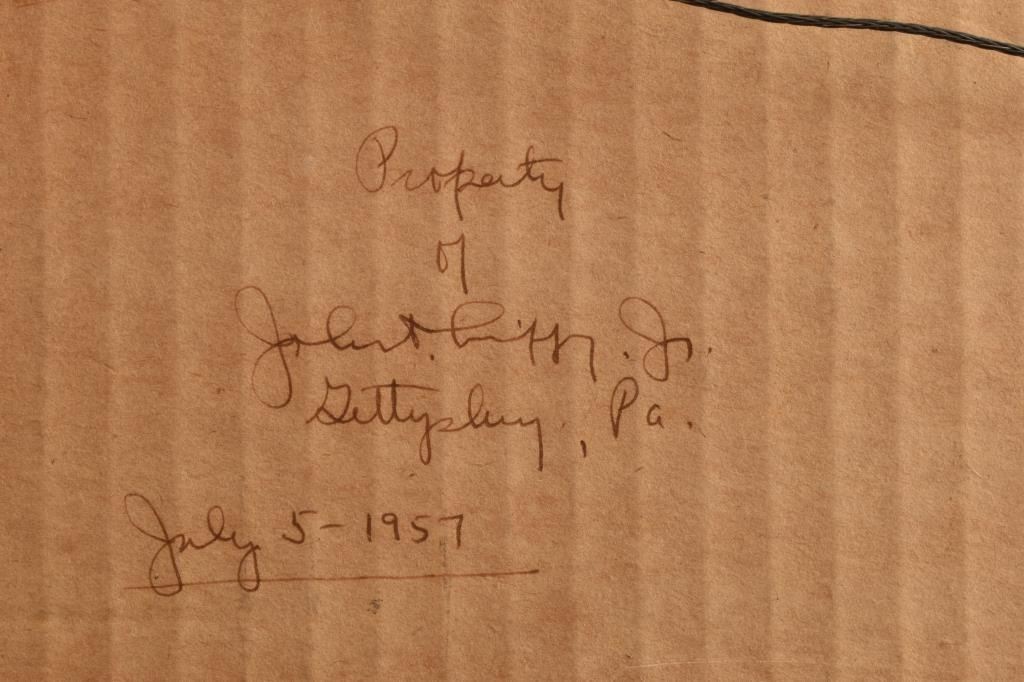 Property
of
John D. Lippy. Jr.
Gettysburg, Pa.
July 5-1957